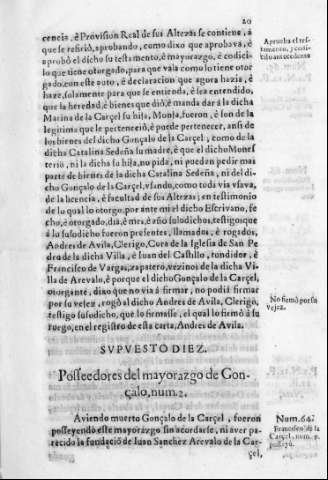 20
cencia, è Provision Real de sus Altezas se contiene, à
que se refirió, aprobando, como dixo que aprobava, è
aprobó el dicho su testamento, è mayorazgo, è codici-
lo que tiene otorgado, para que vala como lo tiene otor-
gado, con este auto, è declaracion que agora hazía, è
haze, solamente para que se entienda, è sea entendido,
que la heredad, è bienes que dió, è manda dar à la dicha
Marina de la Carçel su hija, Monja, fueron, è son de la
legitima que le perteneció, è puede pertenecer, ansi de
los bienes del dicho Gonçalo de la Carçel, como de la
dicha Catalina Sedeña su madre, è que el dicho Mones
terio, ni la dicha su hija, no pida, ni puedan pedir mas
parte de bienes de la dicha Catalina Sedeña, ni del di-
cho Gonçalo de la Carçel, vsando, como toda via vsava,
de la licencia, è facultad de sus Altezas; en testimonio
de lo qual lo otorgo, por ante mi el dicho Escrivano, fe
cho, è otorgado, dia, è mes, è año susodichos, testigos que
à lo susodicho fueron presentes, llamados, è rogados,
Andres de Avila, Clerigo, Cura de la Iglesia de San Pe
dro de la dicha Villa, è Iuan del Castillo, tundidor, è
Francisco de Vargas, zapatero, vezinos de la dicha Vi-
lla de Arevalo, è porque el dicho Gonçalo de la Carçel,
otorgante, dixo que no via à firmar, no podiá firmar
por su vejez, rogò al dicho Andres de Avila, Clerigo,
testigo susodicho, que lo firmasse, el qual lo firmò à su
ruego, en el registro de esta carta, Andres de Avila.
SVPVESTO DIEZ.
Possedores del mayorazgo de Gon-
çalo, num. 2.
Aviendo muerto Gonçalo de la Carçel, fueron
posseyendo este mayorazgo sin acordarse, ni aver pa-
recido la fundació de Iuan Sanchez Arevalo de la Car-
çel,
Aprueba el tes-
tamento, y
No firmò por su
vejez.
Num. 64.
Francisco de la
Carçel, num. 9.